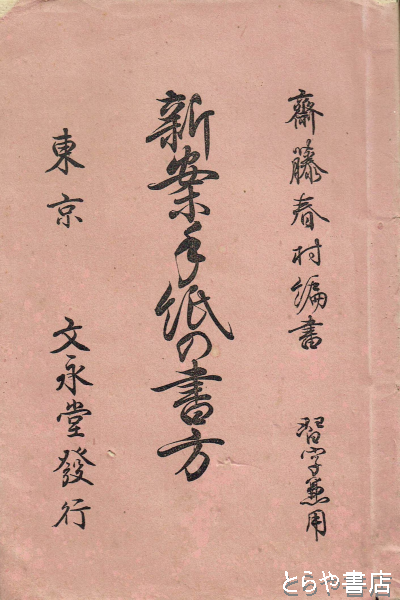 齋藤春村編書
習字兼用
新案手紙の書方
東京
文永堂發行
とらや書店